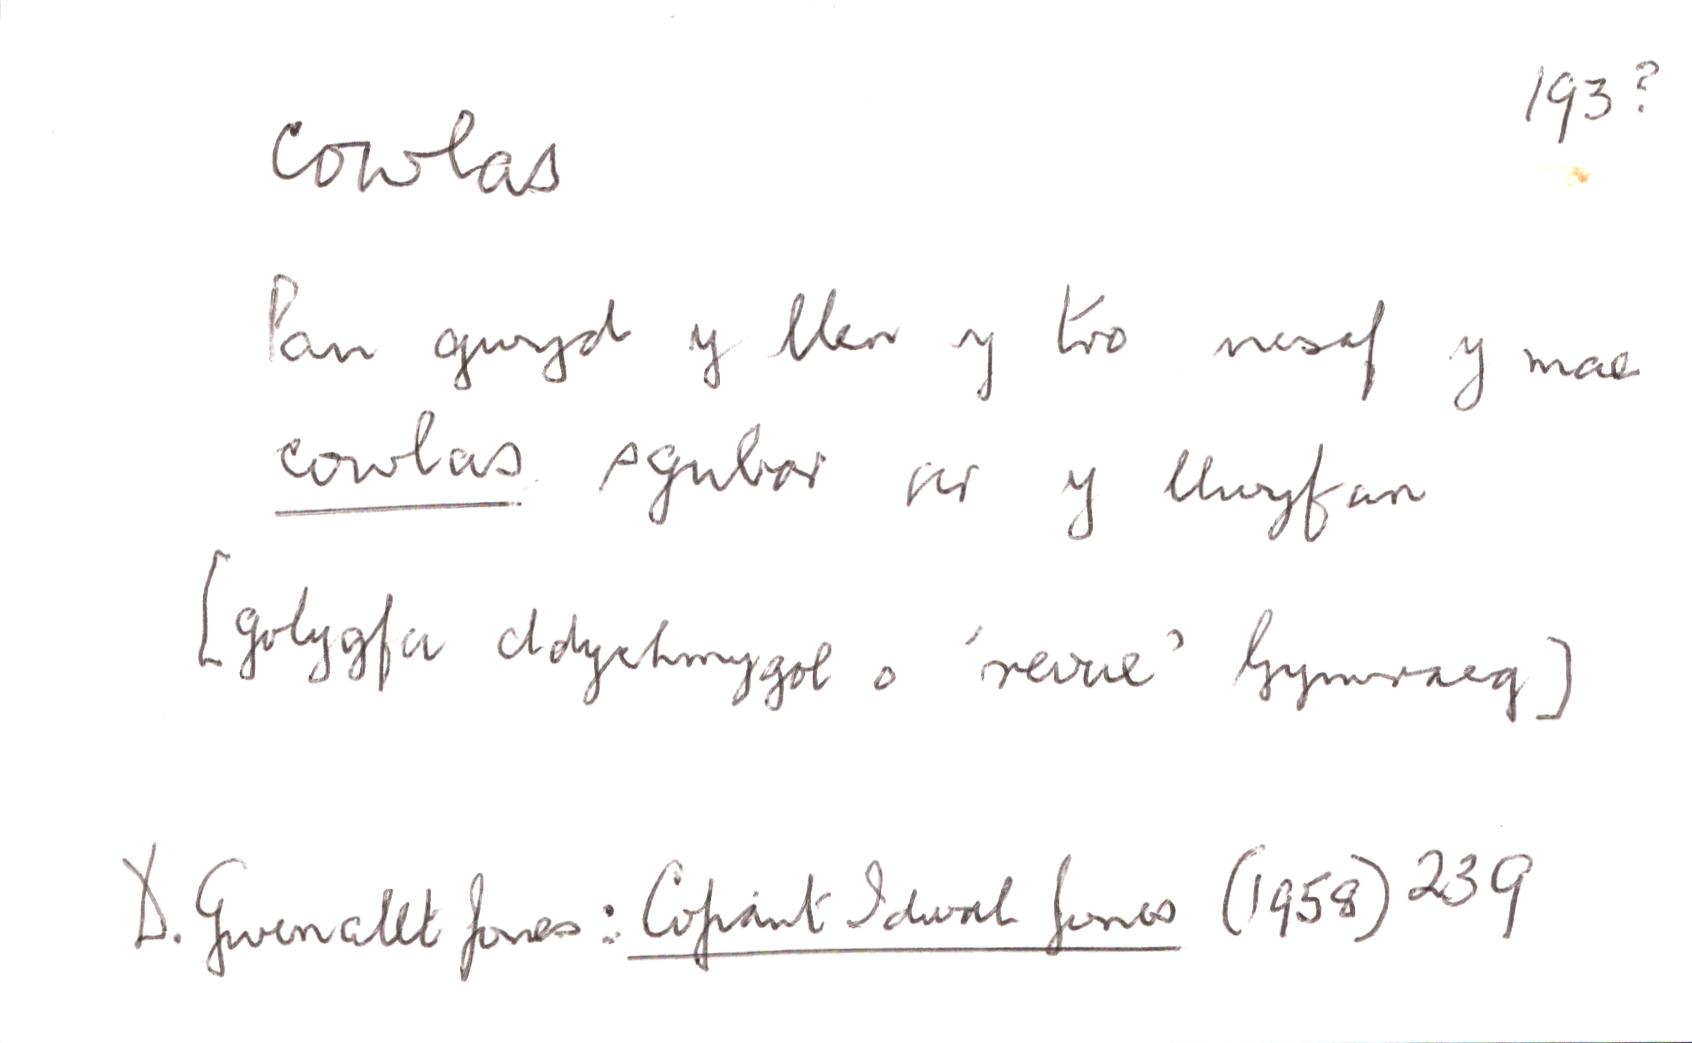 193?
cowlas
Pan gwyd y llen y tro nesaf y mae
cowlas sgubor ar y llwyfan
[golygfa ddychmygol o 'revue' Gymraeg]
D. Gwenallt Jones: Cofiant Idwal Jones (1958) 239